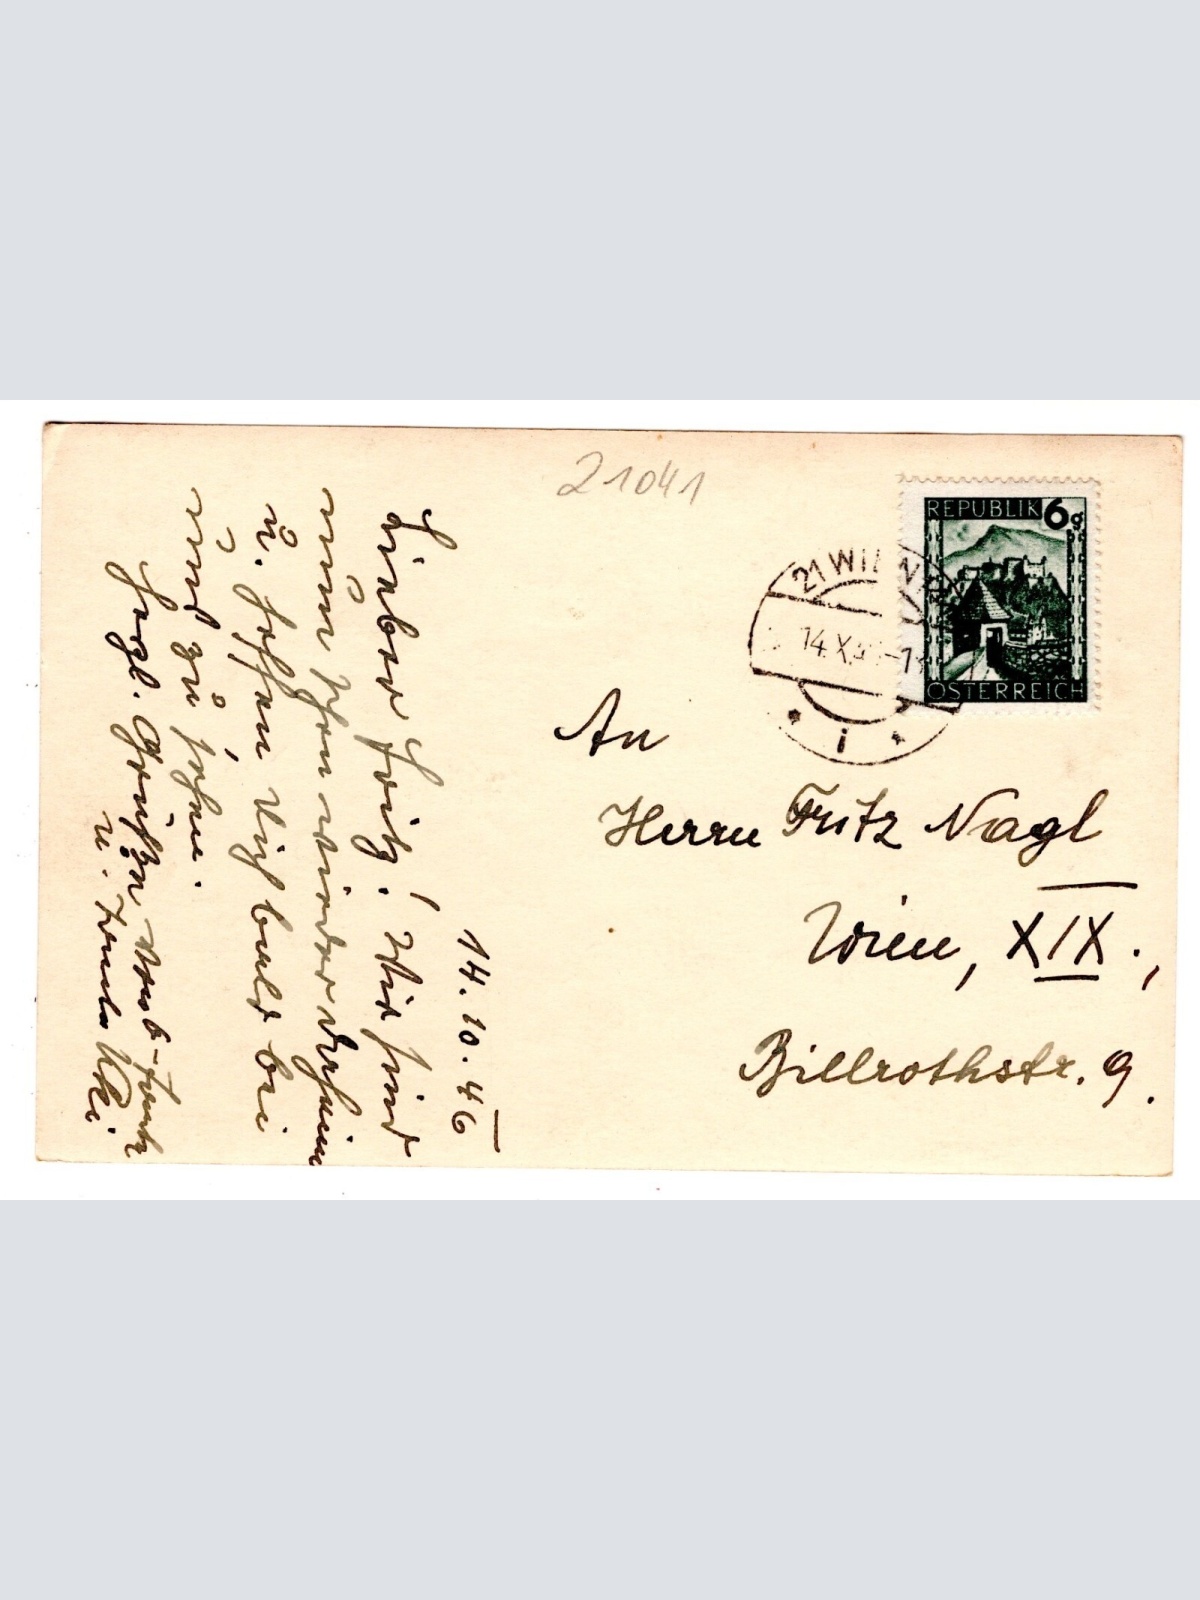 21041
REPUBLIK 6g
ÖSTERREICH
21 WIEN
14.X.4
i
An
Herrn Fritz Nagl
Wien, XIX.,
Billrothstr. 9.
14.10.46
Lieber Fritz! Wir sind
nun schon wieder daheim
u. hoffen Dich bald bei
uns zu sehen.
Herzl. Grüße
u. Tante